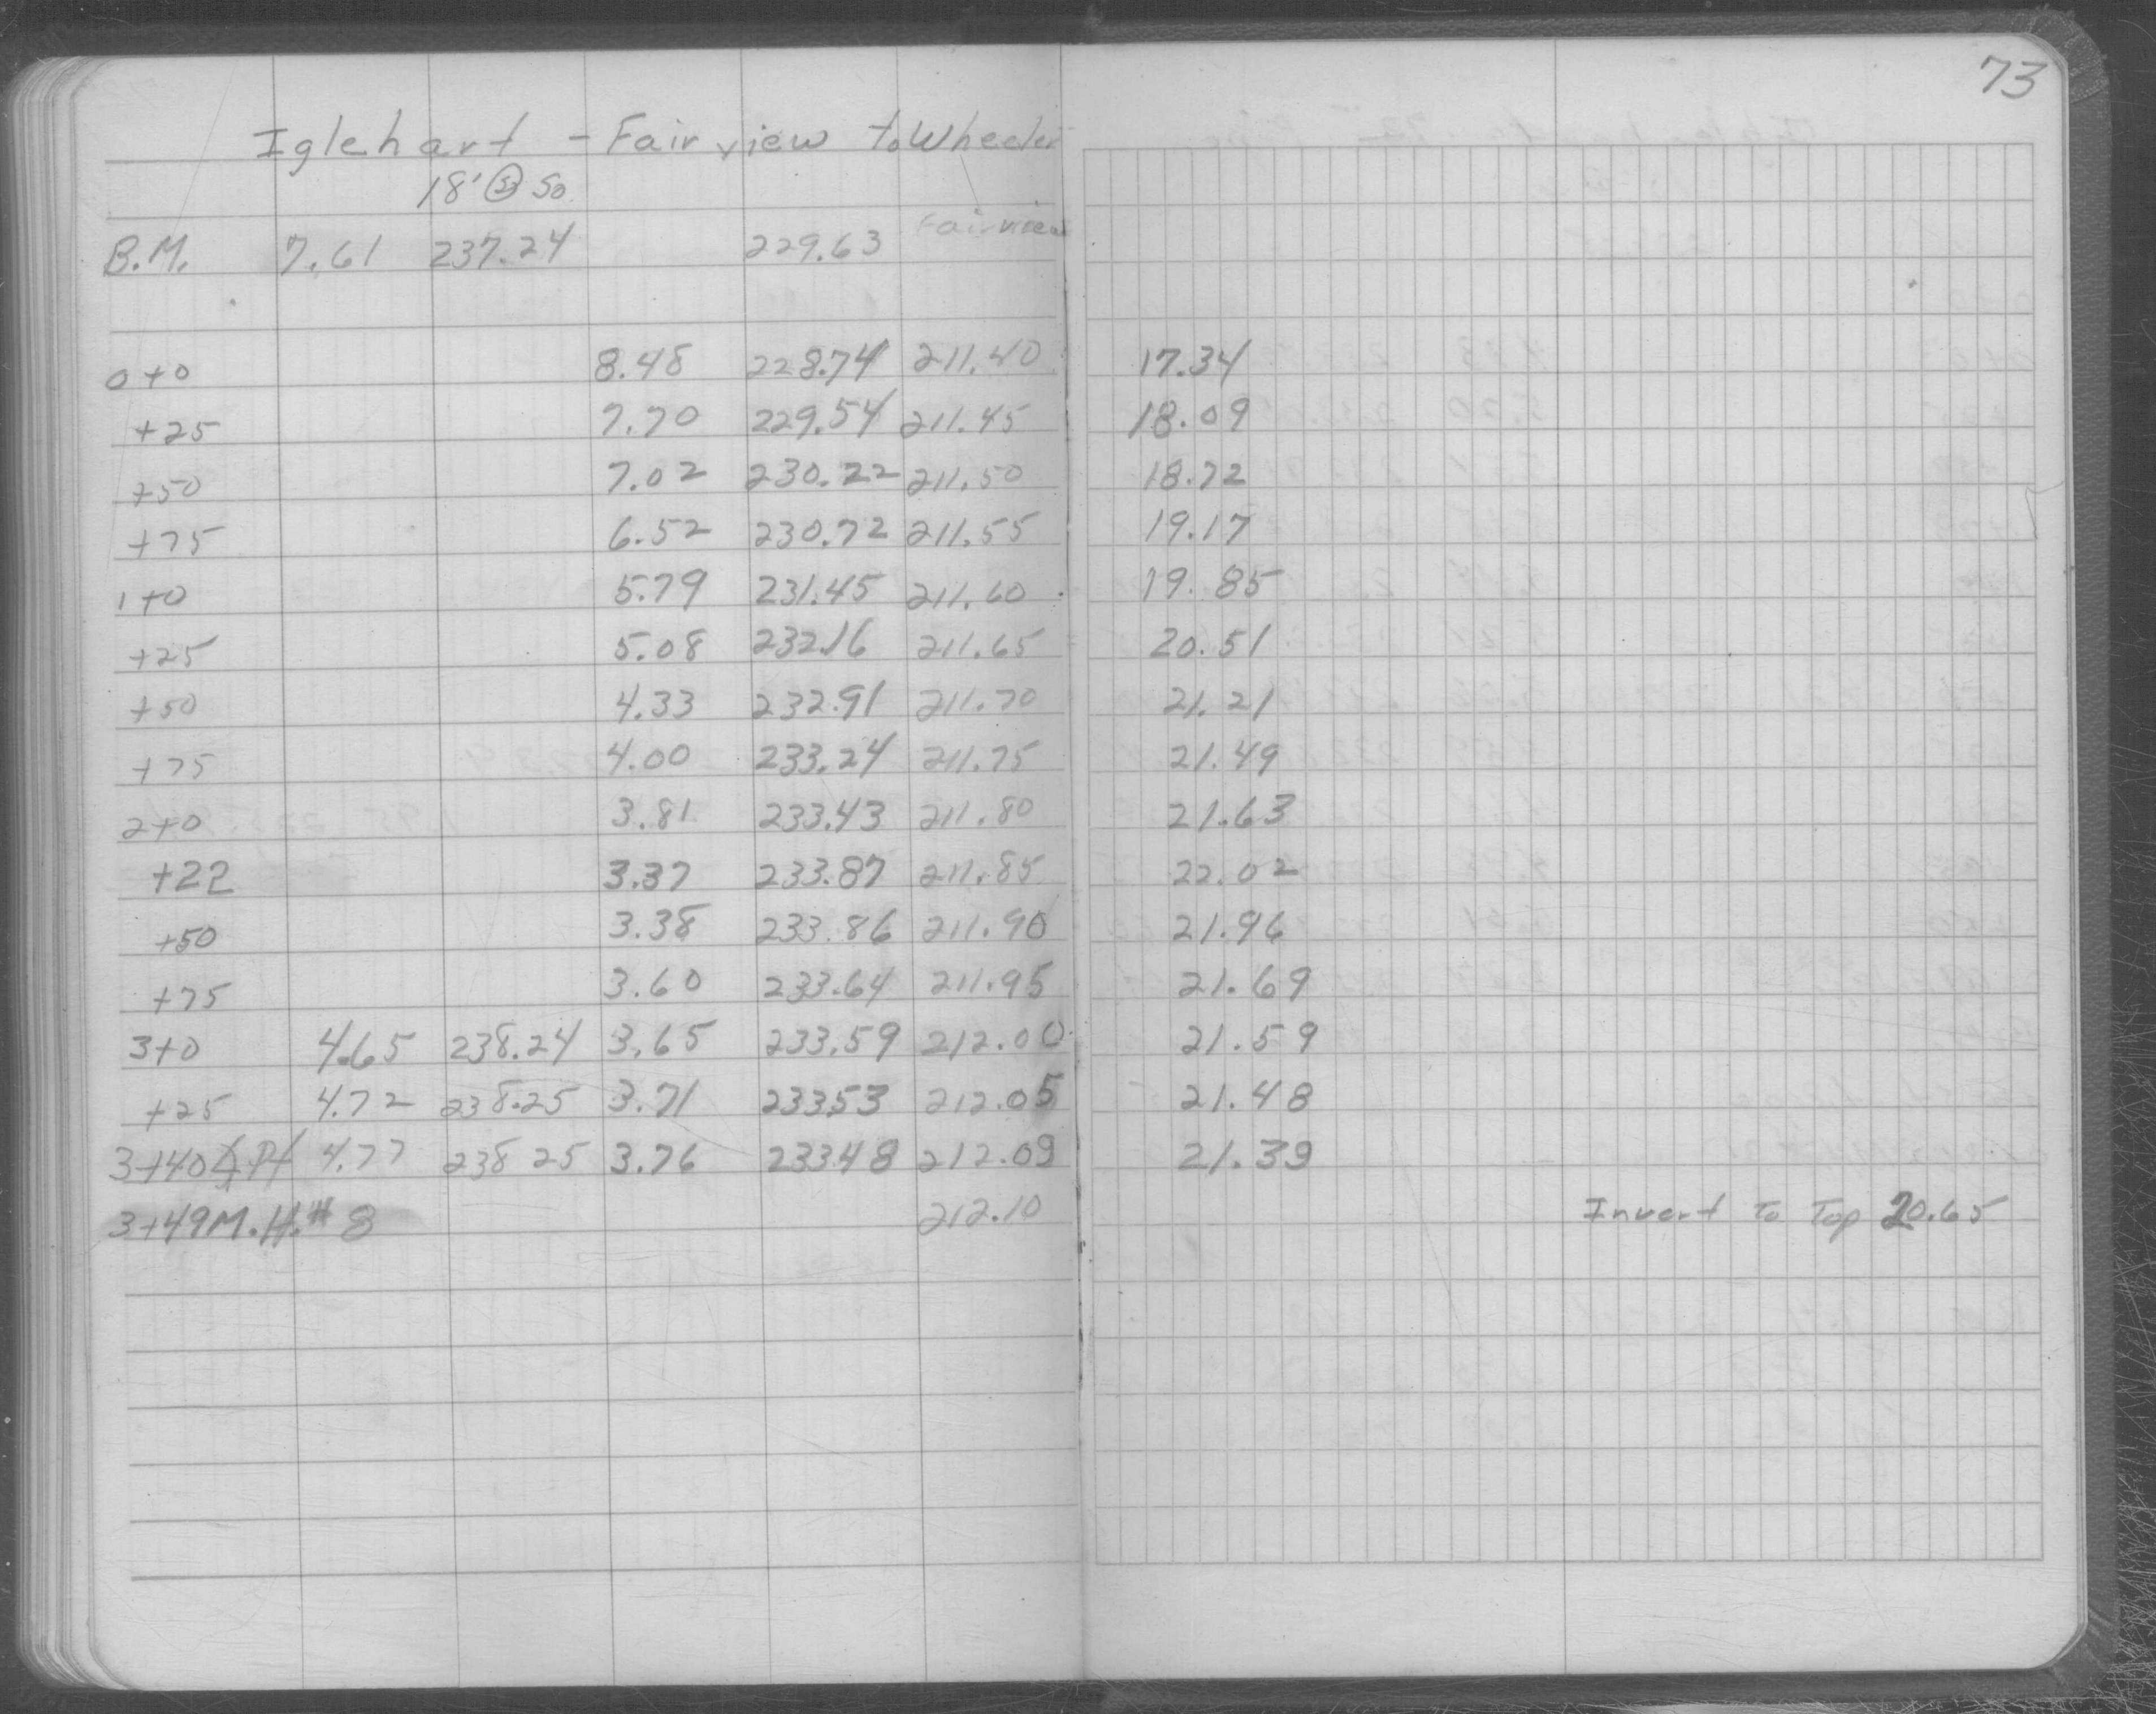 73
Iglehart - Fairview to Wheeler
18' So
Fairview
B.M. 7.61 237.24 229.63
0+0 8.48 228.74 211.40 17.34
+25 7.70 229.54 211.45 18.09
+50 7.02 230.22 211.50 18.72
+75 6.52 230.72 211.55 19.17
1+0 5.79 231.45 211.60 19.85
+25 5.08 232.16 211.65 20.51
+50 4.33 232.91 211.70 21.21
+75 4.00 233.24 211.75 21.49
2+0 3.81 233.43 211.80 21.63
+22 3.37 233.87 211.85 22.02
+50 3.38 233.86 211.90 21.96
+75 3.60 233.64 211.95 21.69
3+0 4.65 238.24 3.65 233.59 212.00 21.59
+25 4.72 238.25 3.71 23353 212.05 21.48
3+40 Pt 4.77 238 25 3.76 23348 212.09 21.39
3+49 M.H.# 8 212.10 Invert To Top 20.65